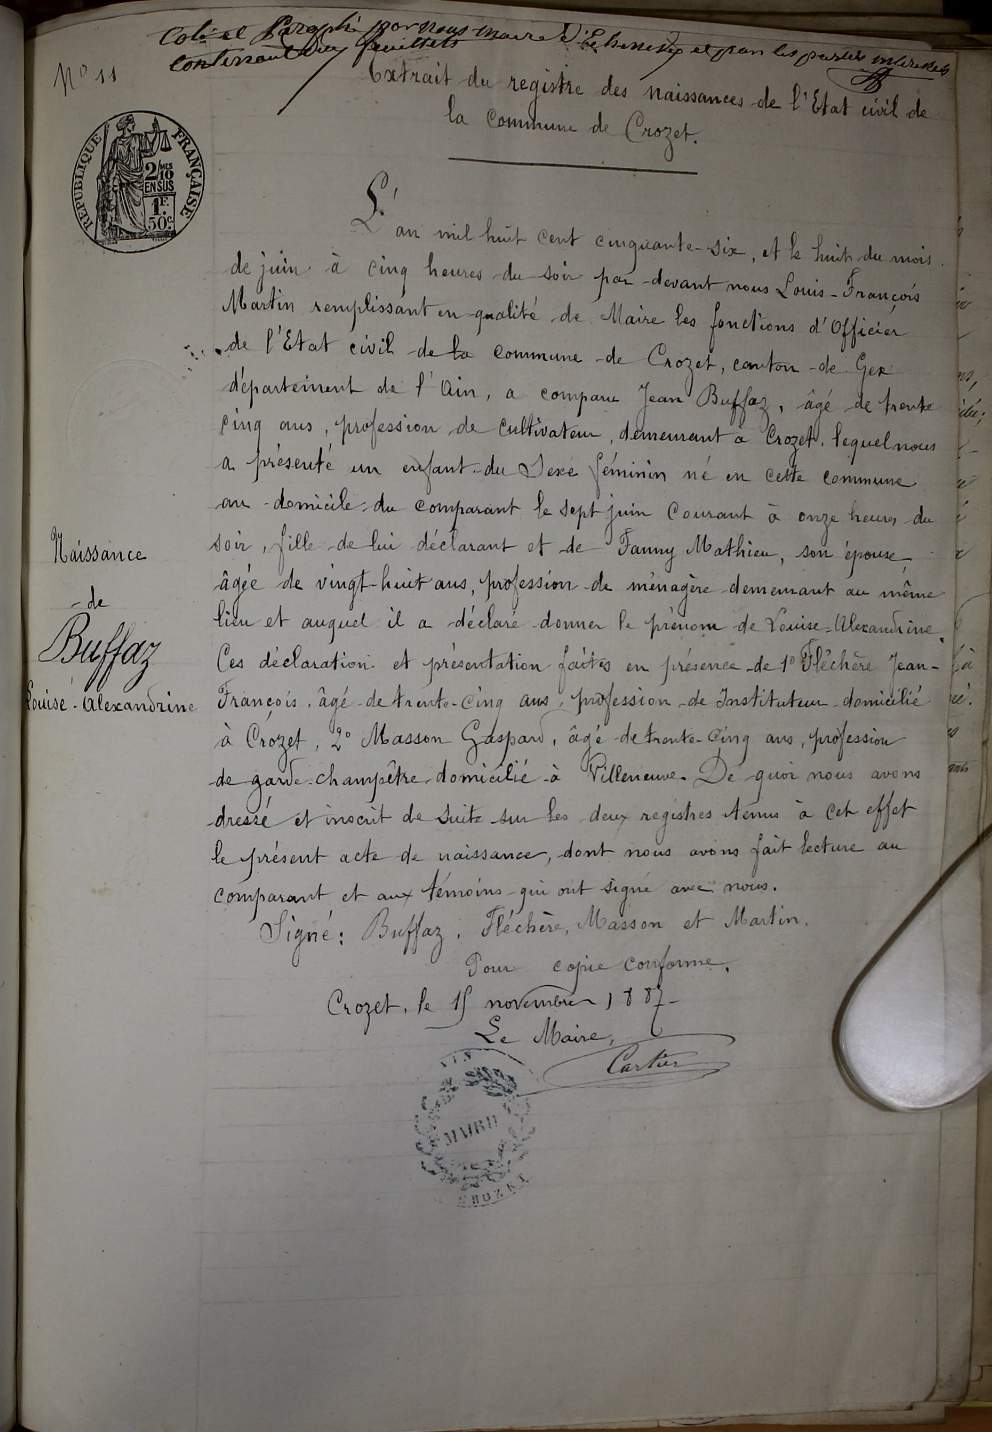 Coté et Paraphé par nous maire d'Echenevex et par les parties intéressées
contenant deux feuillets
N° 11
Extrait du registre des naissances de l'Etat civil de
la Commune de Crozet.
REPUBLIQUE FRANÇAISE
2/10MES
EN SUS
1F.
50c.
L'an mil huit cent cinquante-six, et le huit du mois
de juin à cinq heures du soir par devant nous Louis-François
Martin remplissant en qualité de Maire les fonctions d'Officier
de l'Etat civil de la commune de Crozet, canton de Gex
département de l'Ain, a comparu Jean Buffaz, âgé de trente
cinq ans, profession de cultivateur, demeurant à Crozet, lequel nous
a présenté un enfant du Sexe féminin né en cette commune
au domicile du comparant le sept juin courant à onze heures du
soir, fille de lui déclarant et de Fanny Mathieu, son épouse,
âgée de vingt-huit ans, profession de ménagère demeurant au même
lieu et auquel il a déclaré donner le prénom de Louise-Alexandrine.
Ces déclaration et présentation faites en présence de 1° Fléchère Jean-
François, âgé de trente-cinq ans, profession de Instituteur domicilié
à Crozet, 2° Masson Gaspard, âgé de trente-cinq ans, profession
de garde-champêtre domicilié à Villeneuve. De quoi nous avons
dressé et inscrit de suite sur les deux registres tenus à cet effet
le présent acte de naissance, dont nous avons fait lecture au
comparant et aux témoins qui ont signé avec nous.
Signé: Buffaz, Fléchère, Masson et Martin.
Pour copie conforme.
Crozet, le 15 novembre 1887
Le Maire,
Cartier
MAIRIE
CROZET
AIN
Naissance
de
Buffaz
Louise-Alexandrine